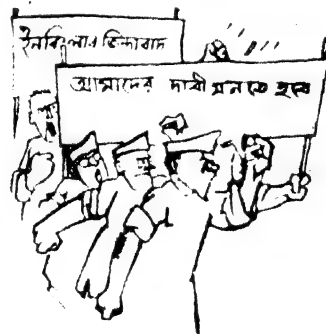 ইনকিলাব জিন্দাবাদ
আমাদের দাবী মানতে হবে